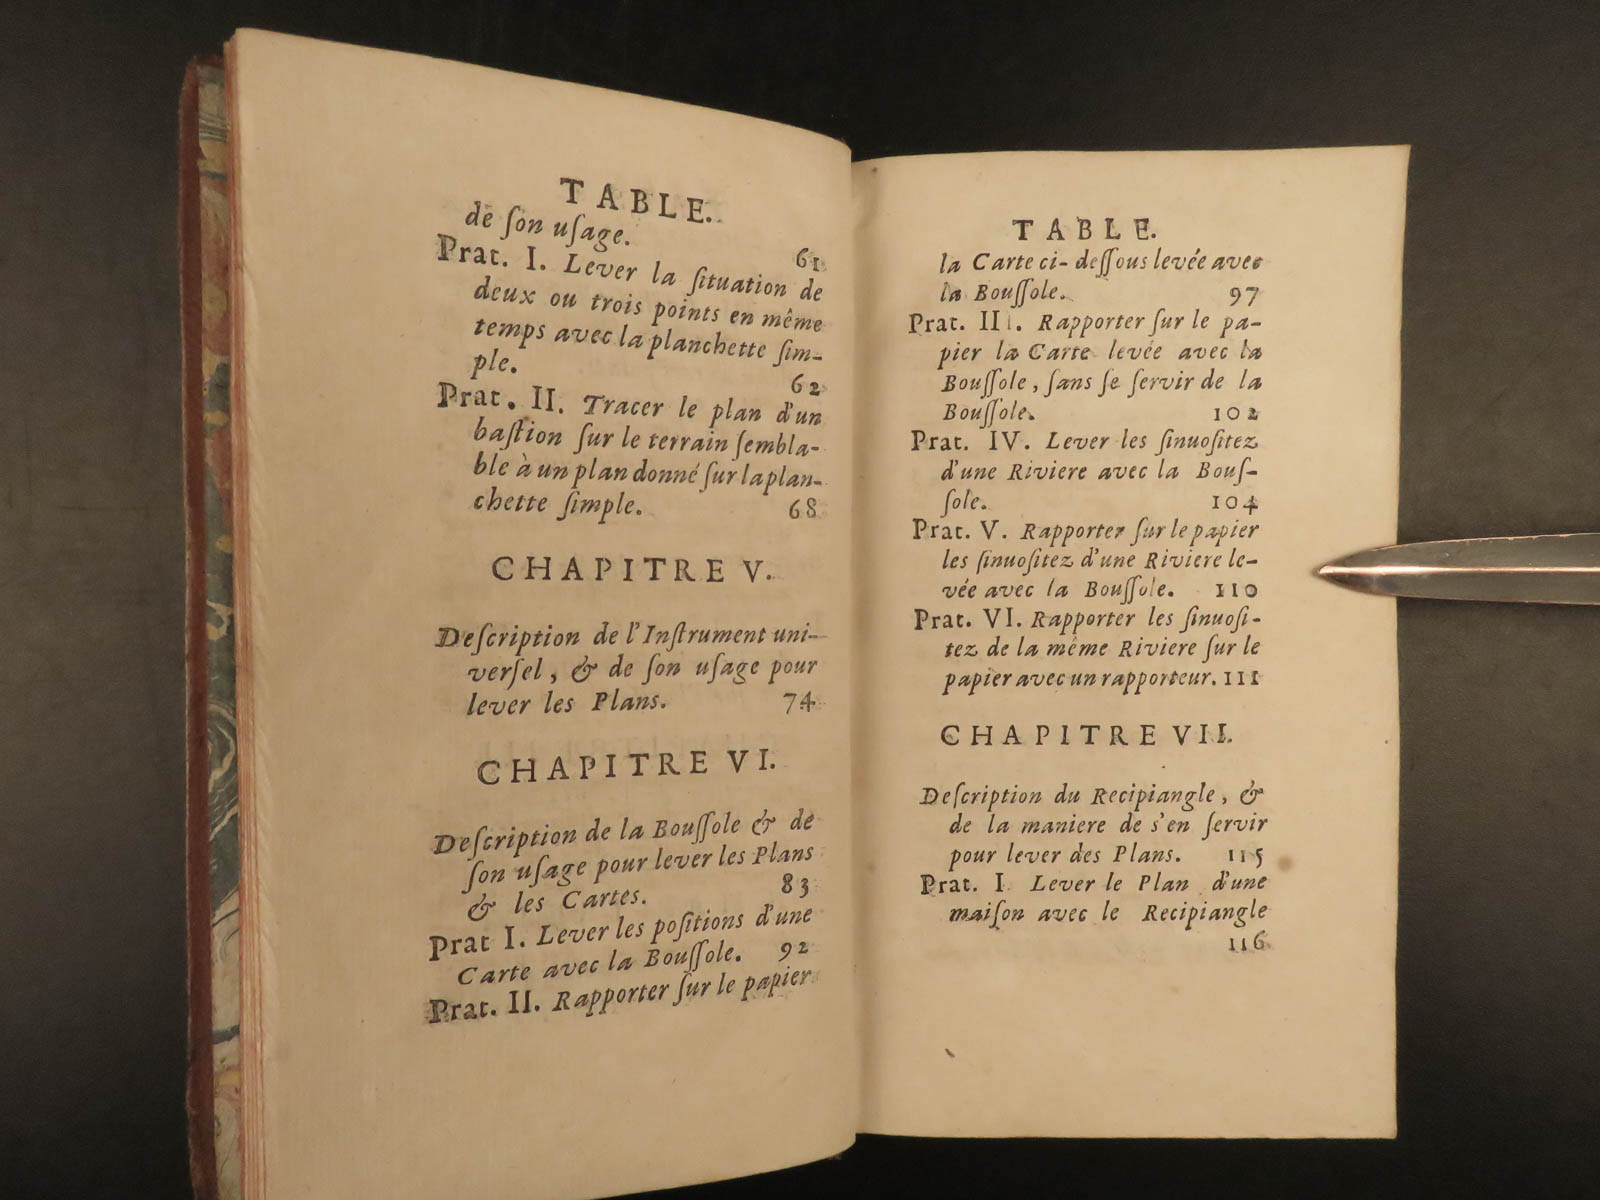 TABLE.
de ſon uſage. 61
Prat. I. Lever la ſituation de
deux ou trois points en même
temps avec la planchette ſim-
ple. 62
Prat. II. Tracer le plan d'un
baſtion ſur le terrain ſembla-
ble à un plan donné ſur la plan-
chette ſimple. 68
CHAPITRE V.
Deſcription de l'Inſtrument uni-
verſel, & de ſon uſage pour
lever les Plans. 74
CHAPITRE VI.
Deſcription de la Bouſſole & de
ſon uſage pour lever les Plans
& les Cartes. 83
Prat I. Lever les poſitions d'une
Carte avec la Bouſſole. 92
Prat. II. Rapporter ſur le papier
TABLE.
la Carte ci-deſſous levée avec
la Bouſſole. 97
Prat. III. Rapporter ſur le pa-
pier la Carte levée avec la
Bouſſole, ſans ſe ſervir de la
Bouſſole. 102
Prat. IV. Lever les ſinuoſitez
d'une Riviere avec la Bouſ-
ſole. 104
Prat. V. Rapporter ſur le papier
les ſinuoſitez d'une Riviere le-
vée avec la Bouſſole. 110
Prat. VI. Rapporter les ſinuoſi-
tez de la même Riviere ſur le
papier avec un rapporteur. 111
CHAPITRE VII.
Deſcription du Recipiangle, &
de la maniere de s'en ſervir
pour lever des Plans. 115
Prat. I Lever le Plan d'une
maiſon avec le Recipiangle
116